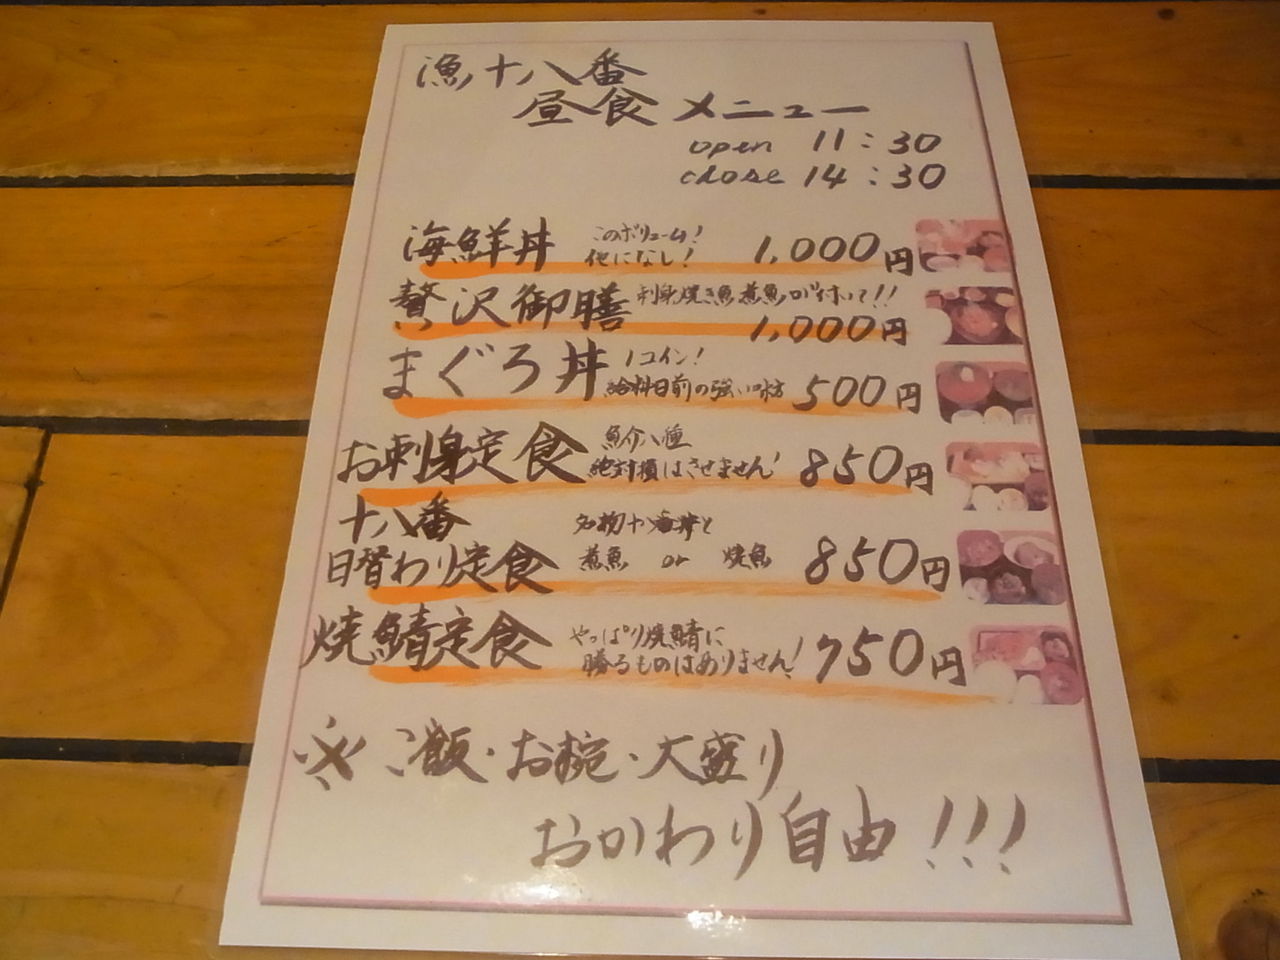 漁十八番
昼食メニュー
open 11:30
close 14:30
海鮮丼 このボリューム! 他になし! 1,000円
贅沢御膳 刺身焼き魚煮魚が付いて!! 1,000円
まぐろ丼 1コイン! 給料日前の強い味方 500円
お刺身定食 魚介八種 絶対損はさせません! 850円
十八番
日替わり定食 名物十八番丼と 煮魚 or 焼魚 850円
焼鯖定食 やっぱり焼鯖に 勝るものはありません! 750円
※ご飯・お椀・大盛り
おかわり自由!!!